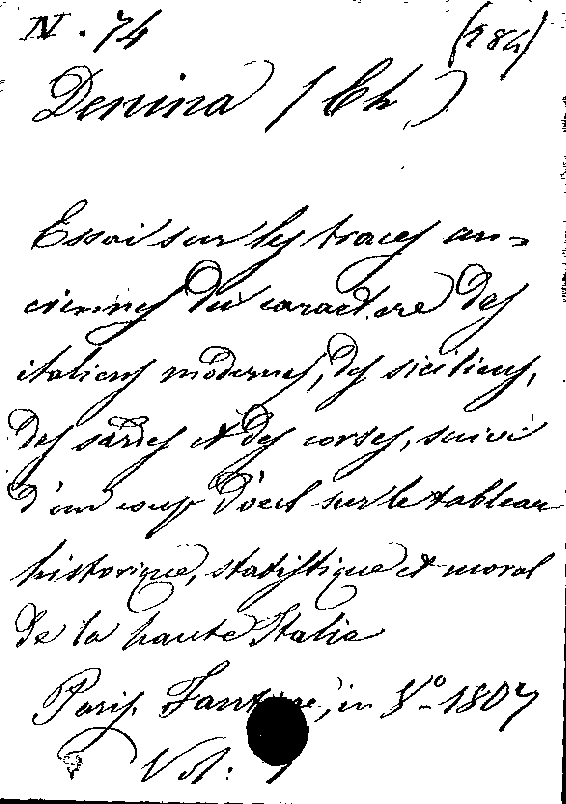 N. 74 (184)
Denina (Ch.)
Essai sur les traces an-
ciennes du caractere des
italiens modernes, des siciliens,
des sardes et des corses, suivi
d'un coup d'oeil sur le tableau
historique, statistique et moral
de la haute Italie
Paris. Fantine, in 8º 1807
Vol: 1